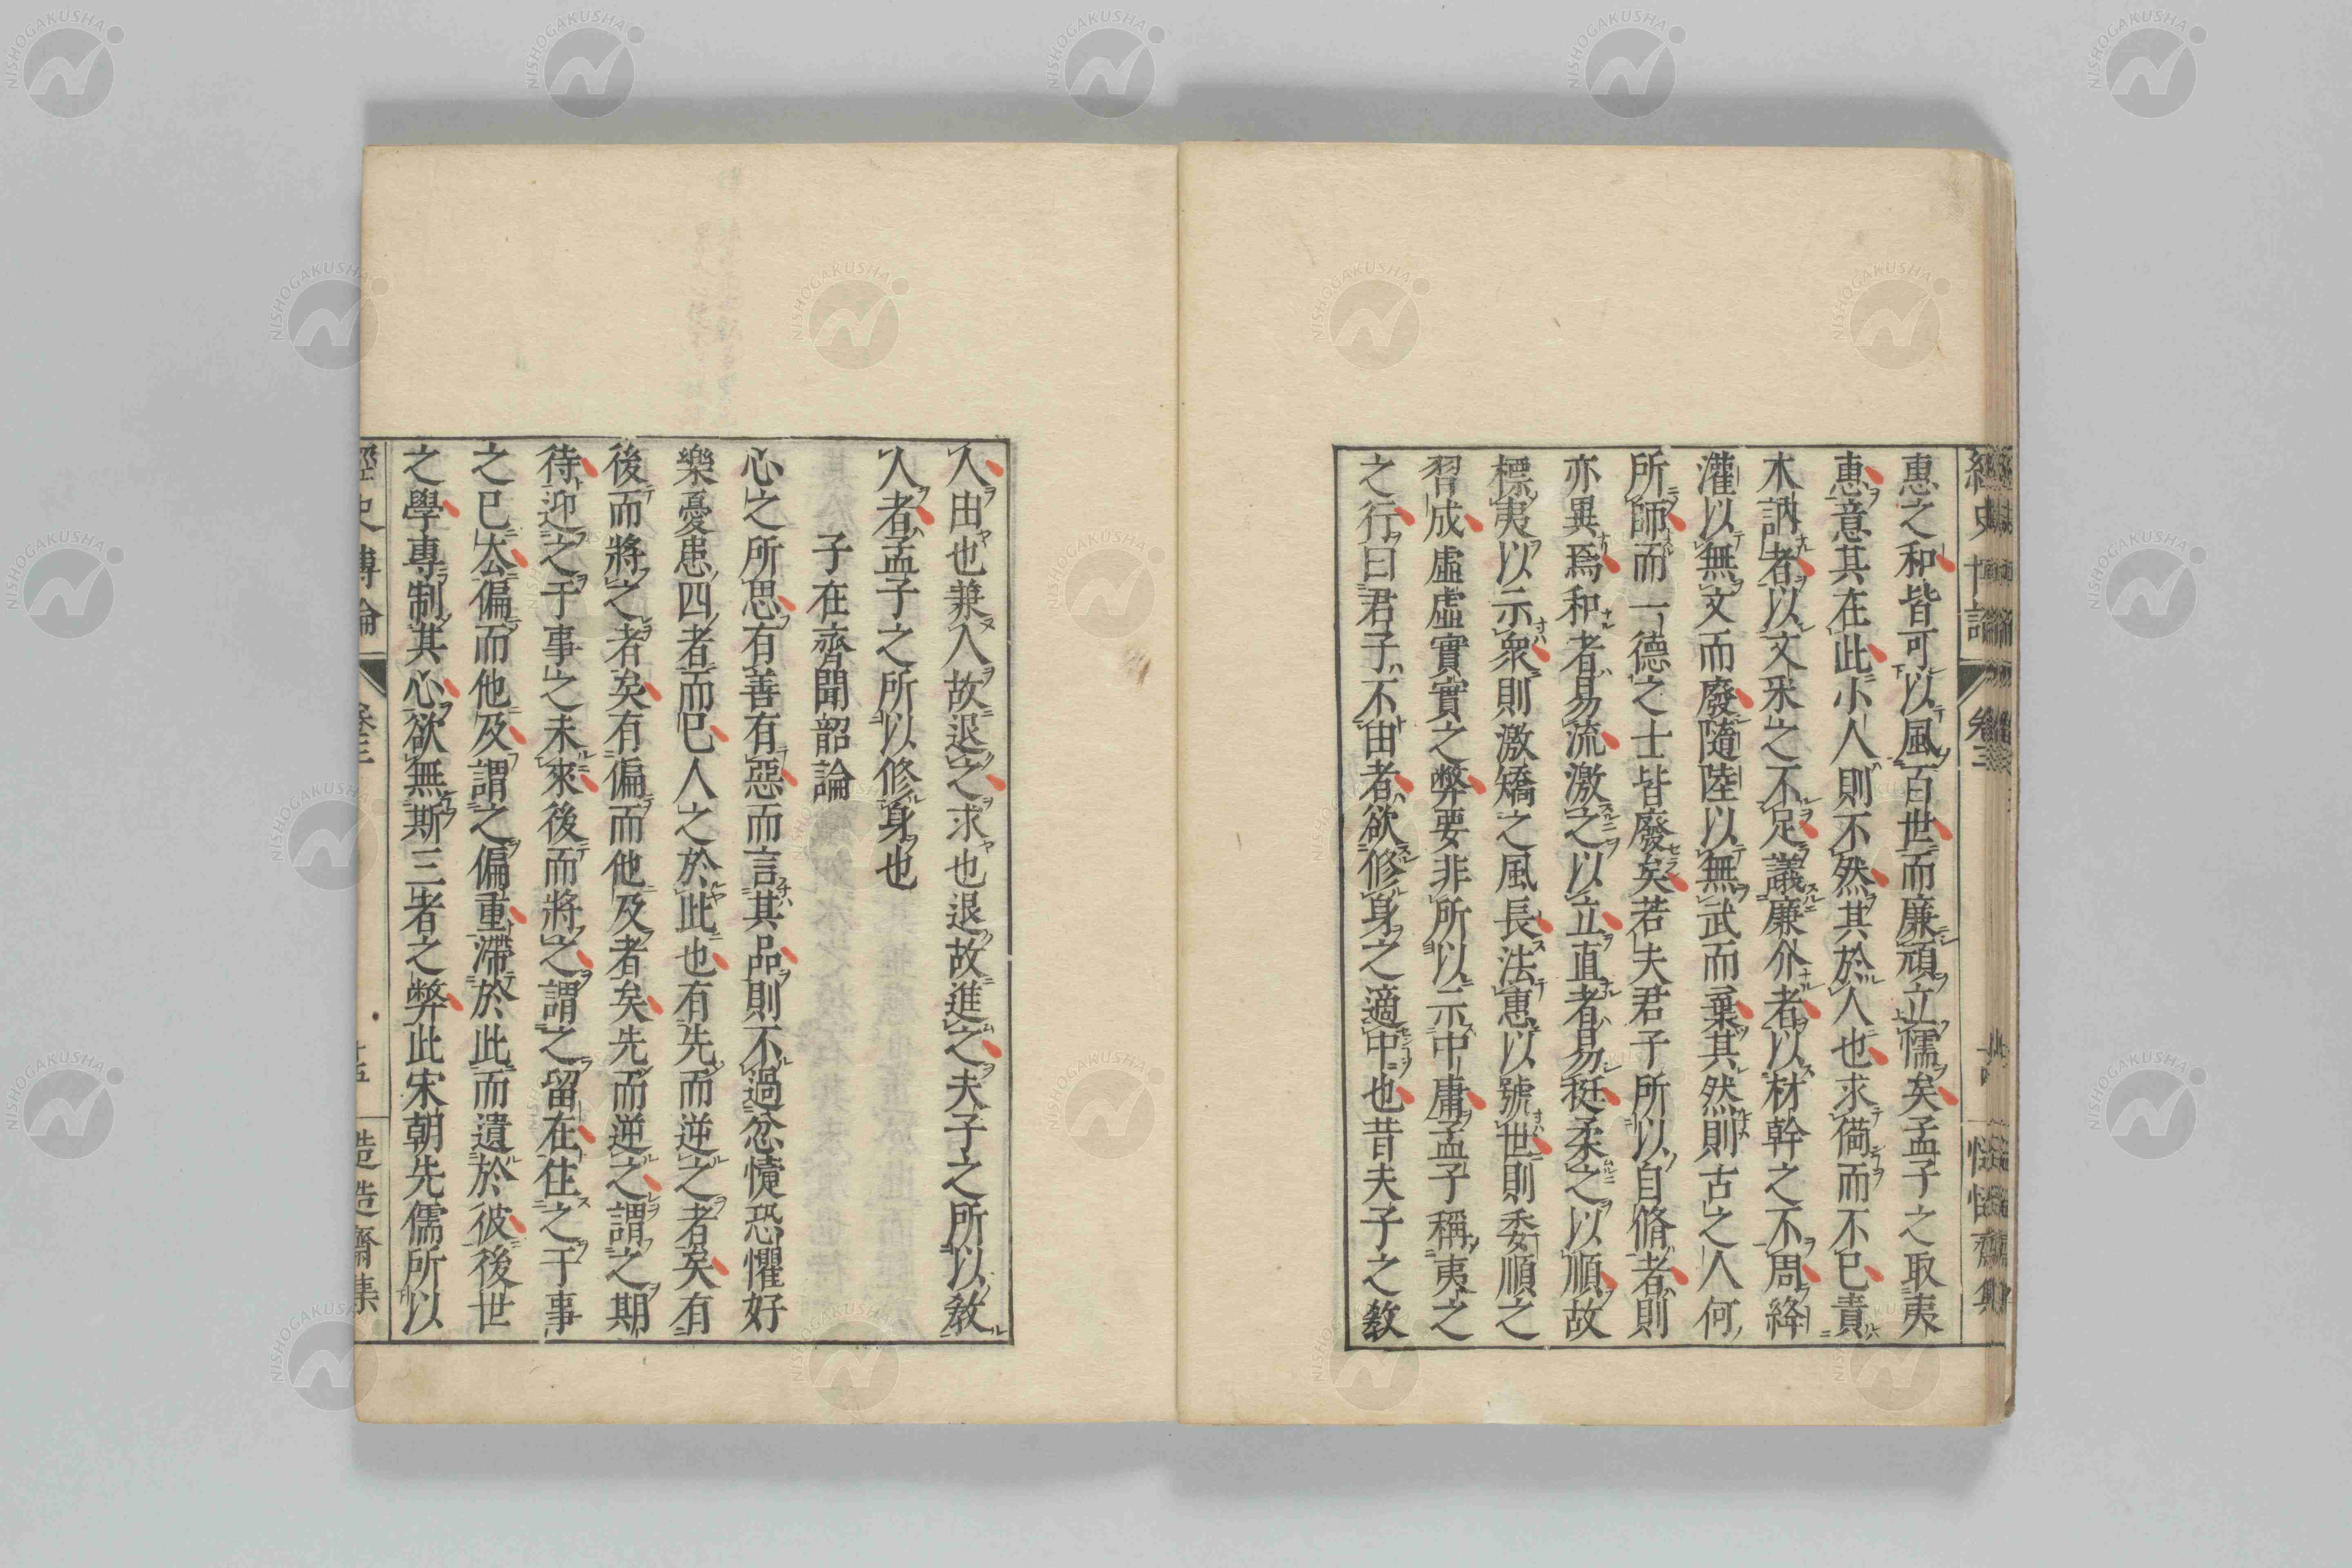 惠之和皆可以風百世而廉頑立懦矣孟子之取夷
惠意其在此小人則不然其於人也求備而不已責
木訥者以文釆之不足議廉介者以材幹之不周絳
灌以無文而廢隨陸以無武而棄其然則古之人何
所師而一德之士皆廢矣若夫君子所以自脩者則
亦異焉和者易流激之以立直者易挺柔之以順故
標夷以示衆則激矯之風長法惠以號世則委順之
習成虛虛實實之弊要非所以示中庸孟子稱夷之
之行曰君子不由者欲修身之適中也昔夫子之教
人由也兼人故退之求也退故進之夫子之所以教
人者孟子之所以修身也
子在齊聞韶論
心之所思有善有惡而言其品則不過忿懥恐懼好
樂憂患四者而已人之於此也有先而逆之者矣有
後而將之者矣有偏而他及者矣先而逆之謂之期
待迎之于事之未來後而將之謂之留在住之于事
之已厺偏而他及謂之偏重滯於此而遺於彼後世
之學專制其心欲無斯三者之弊此宋朝先儒所以
經史博論
卷三
十五
造造齋集
NISHOGAKUSHA